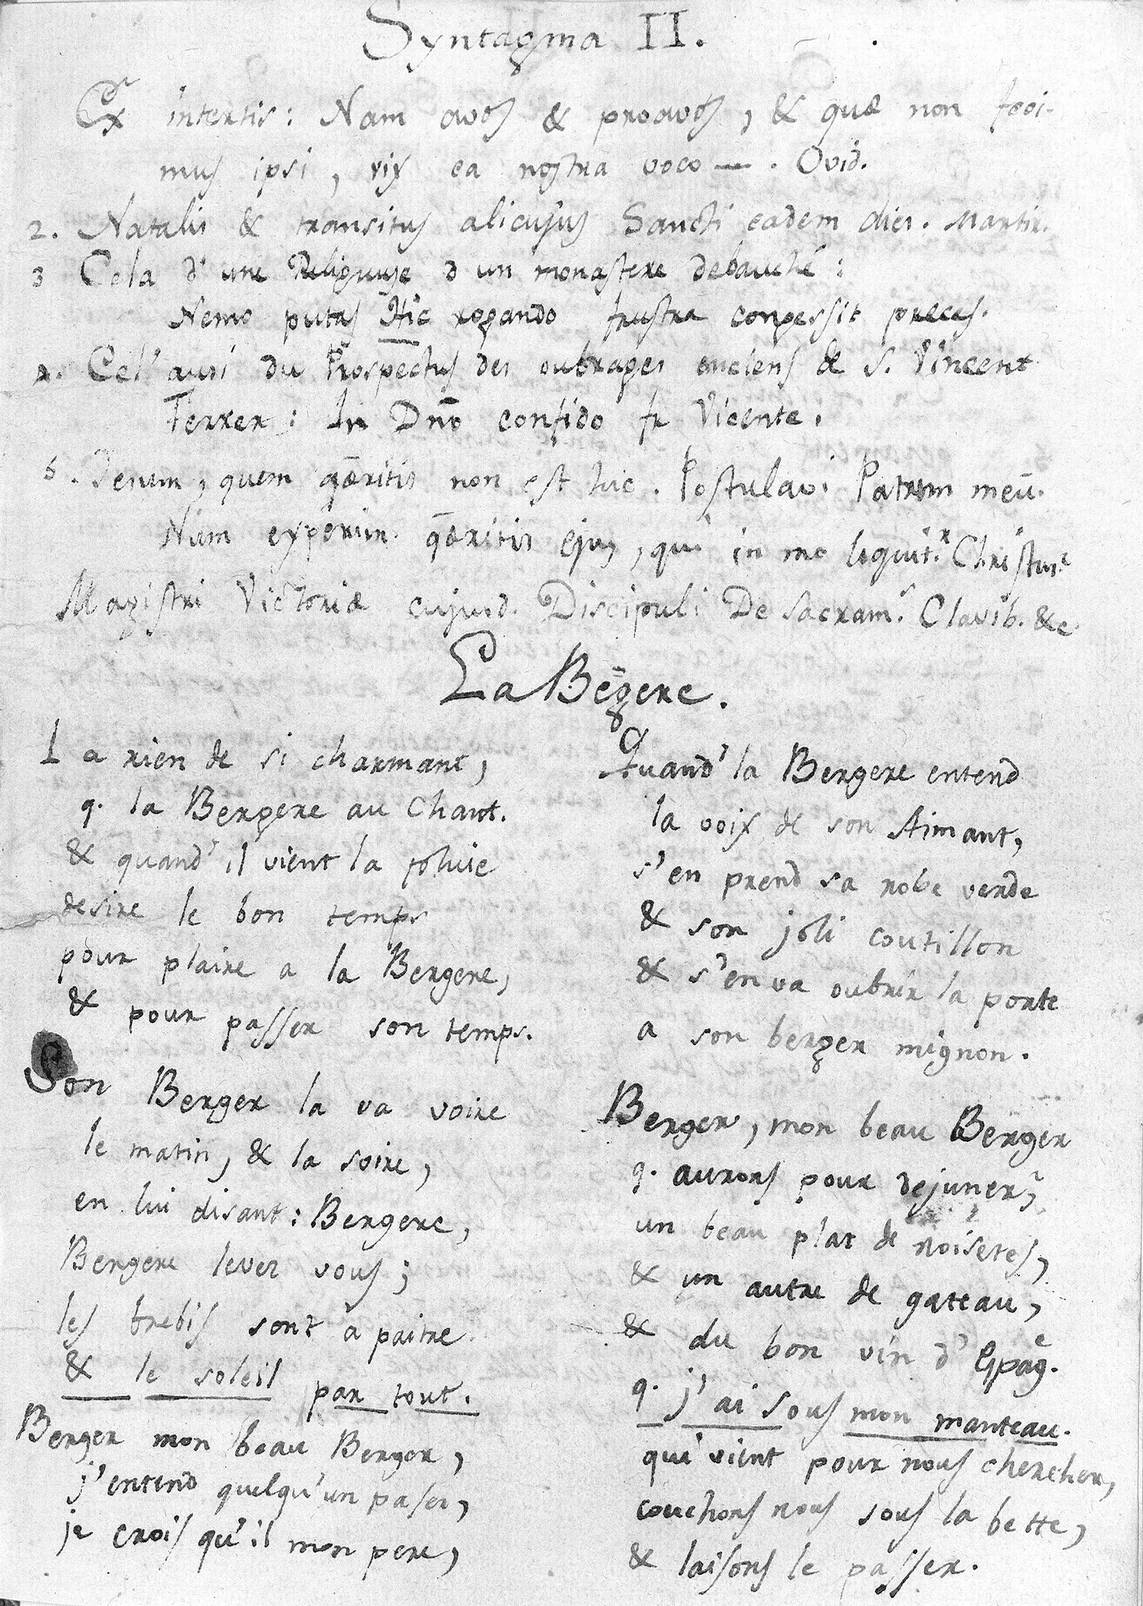 Syntagma II.
Ex intertis: Nam avos & proavos, & quæ non feci-
mus ipsi, vix ea nostra voco —. Ovid.
2. Natalis & transitus alicujus Sancti eadem dies. Martir.
3 Cela d'une Religiuse d un monastere debauché:
Nemo putas Hic rogando frustra congessit preces.
4. Cel' ausi du Prospectus des oubrages enciens de S. Vincent
Ferrer: In Dno confido fr Vicente.
5. Jesum, quem quæritis non est hic. Postulavi Patrem meū.
Num experim. quæritis ejus, qui in me loquit.r Christus?
Magistri Victoriæ cujusd. Discipuli De Sacram.s Clavib. &c.
La Begere.
I a rien de si charmant,
q. la Bergere au Chant.
& quand' il vient la
desire le bon temps
pour plaire a la Bergere,
& pour passer son temps.
Son Berger la va voire
le matin, & la soire,
en lui disant: Bergere,
Bergere lever vous;
les brebis sont à paitre
& le soleil par tout.
Berger mon beau Berger,
j'entend quelqu'un paser,
je crois qu'il mon pere,
Quand' la Bergere entend
la voix de son Aimant,
s'en prend sa robe verde
& son joli coutillon
& s'en va oubrir la porte
a son berger mignon.
Berger, mon beau Berger
q. aurons pour dejuner?
un beau plat de noisetes,
& un autre de gateau,
& du bon vin d' Espag.e
q. j'ai sous mon manteau.
qui vient pour nous chercher,
couchons nous sous la bette,
& laisons le passer.